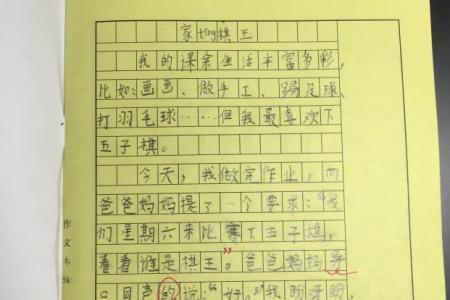 家ting棋王
我的课余生活丰富多彩，
比如：画画、做手工、踢足球、
打羽毛球……但我最喜欢下
五子棋。
今天，我做完作业，向
爸爸妈妈提了一个要求：“我
们星期六来比赛下五子棋，
看看谁是棋王”。爸爸妈妈异
口同声的说：“好。”我盼呀盼，
作文本